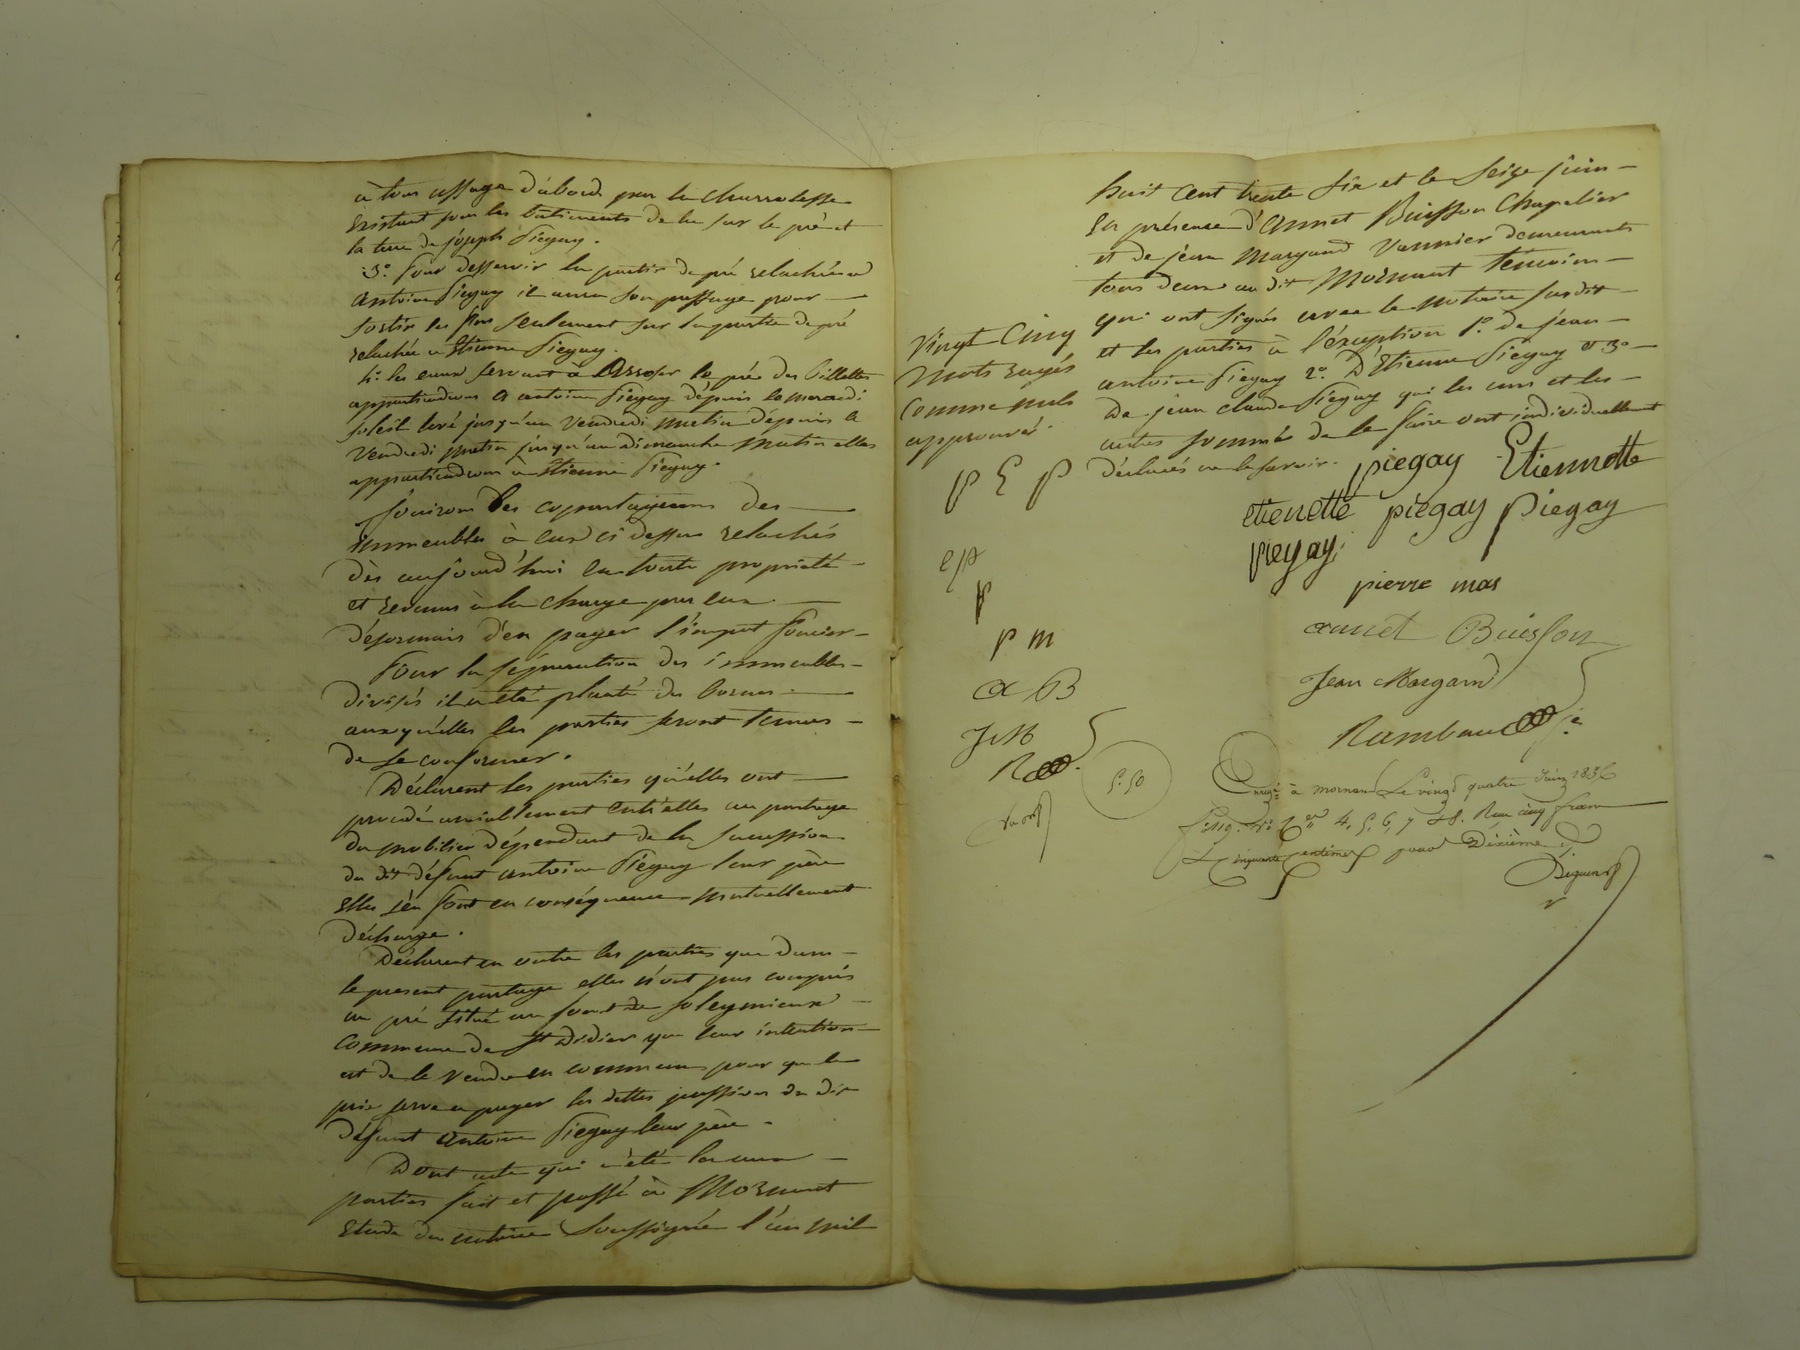 à tous ussage d'abord par la charrolesse
Existant sous les batiments de la sur le pré et
la terre de joseph Piegay.
3º. Pour desservir la partie de pré relachée a
antoine Piegay il aura son passage pour
sortir les foins seulement sur la partie de pré
relachée a Etienne Piegay.
4º. les eaux servant à Arroser le pré des Pillottes
appartiendrons à antoine Piegay depuis le mercredi
soleil levé jusqu'au vendredi matin depuis le
vendredi matin jusqu'au dimanche matin elles
appartiendrons à Etienne Piegay.
Jouirons les copartageans des
immeubles à eux ci dessus relachés
dès aujourd'hui en toute propriété
et revenus à la charge par eux
désormais d'en payer l'impot foncier
Pour la séparation des immeubles
divisés il a été planté des bornes
auxquelles les parties seront tenues
de se conformer.
Déclarent les parties qu'elles ont
procédé amiablement entr'elles au partage
du mobilier dépendant de la succession
du dit défunt antoine Piegay leur père
Elles s'en font en conséquence mutuellement
décharge.
Déclarent en outre les parties que dans
le present partage elles n'ont pas compris
un pré situé au fond de soleymieux
Commune de St Didier que leur intention
est de le vendre en commun pour que le
prix serve a payer les dettes passives du dit
défunt antoine Piegay leur père.
Dont acte qui a été lu aux
parties fait et passé à Mornant
Etude du notaire soussigné l'an mil
huit cent trente six et le seize juin
En présence d'annet Buisson Chapelier
et de jean Margand Vannier demeurants
tous deux au dit Mornant temoins
qui ont signés avec le notaire susdit
et les parties à l'exception 1º. de jean
antoine Piegay 2º. D'Etienne Piegay et 3º
de jean claude Piegay qui les uns et les
autres sommés de le faire ont individuellement
déclarés ne le savoir.
Vingt Cinq
mots rayés
comme nuls
approuvés.
P E P
piegay Etiennette
etienette piégay piegay
piegay
ep
p
pierre mas
p m
annet Buisson
a B
Jean Margand
J M
Rambaud
R
5.50
Enregé. à mornant Le vingt quatre Juin 1836
4, 5, 6, 7 et 8. Reçu cinq francs
cinquante centimes pour Dixième